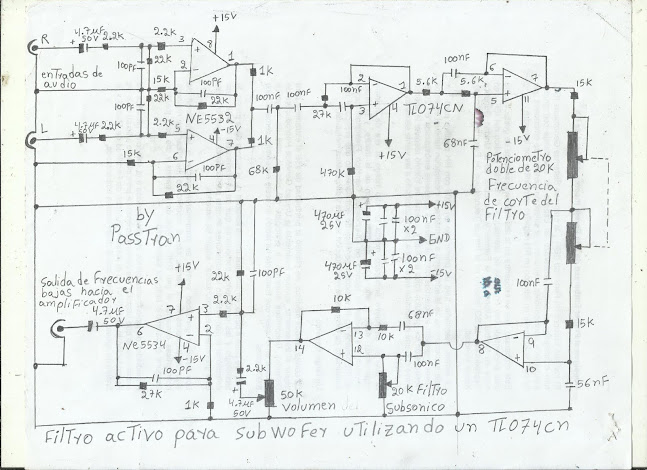 R
4.7µF
50V
2.2K
2.2K
3
8
+15V
1
2
100PF
22K
100PF
22K
1K
entradas de
audio
15K
22K
100PF
NE5532
L
4.7µF
50V
2.2K
2.2K
5
4
-15V
7
6
15K
100PF
22K
1K
100nF
100nF
100nF
27K
68K
470K
2
1
3
4
+15V
TL074CN
5.6K
5.6K
100nF
6
7
5
11
-15V
68nF
15K
Potenciometro
doble de 20K
Frecuencia
de corte del
Filtro
by
PassTran
470µF
25V
100nF
x2
+15V
GND
470µF
25V
100nF
x2
-15V
Salida de Frecuencias
bajas hacia el
amplificador
4.7µF
50V
+15V
7
6
3
2
4
-15V
NE5534
22K
100PF
2.2K
100PF
27K
1K
2.2K
4.7µF
50V
50K
Volumen
10K
14
13
12
10K
68nF
100nF
20K Filtro
Subsonico
8
9
10
100nF
15K
56nF
Filtro activo para subwofer utilizando un TL074cn